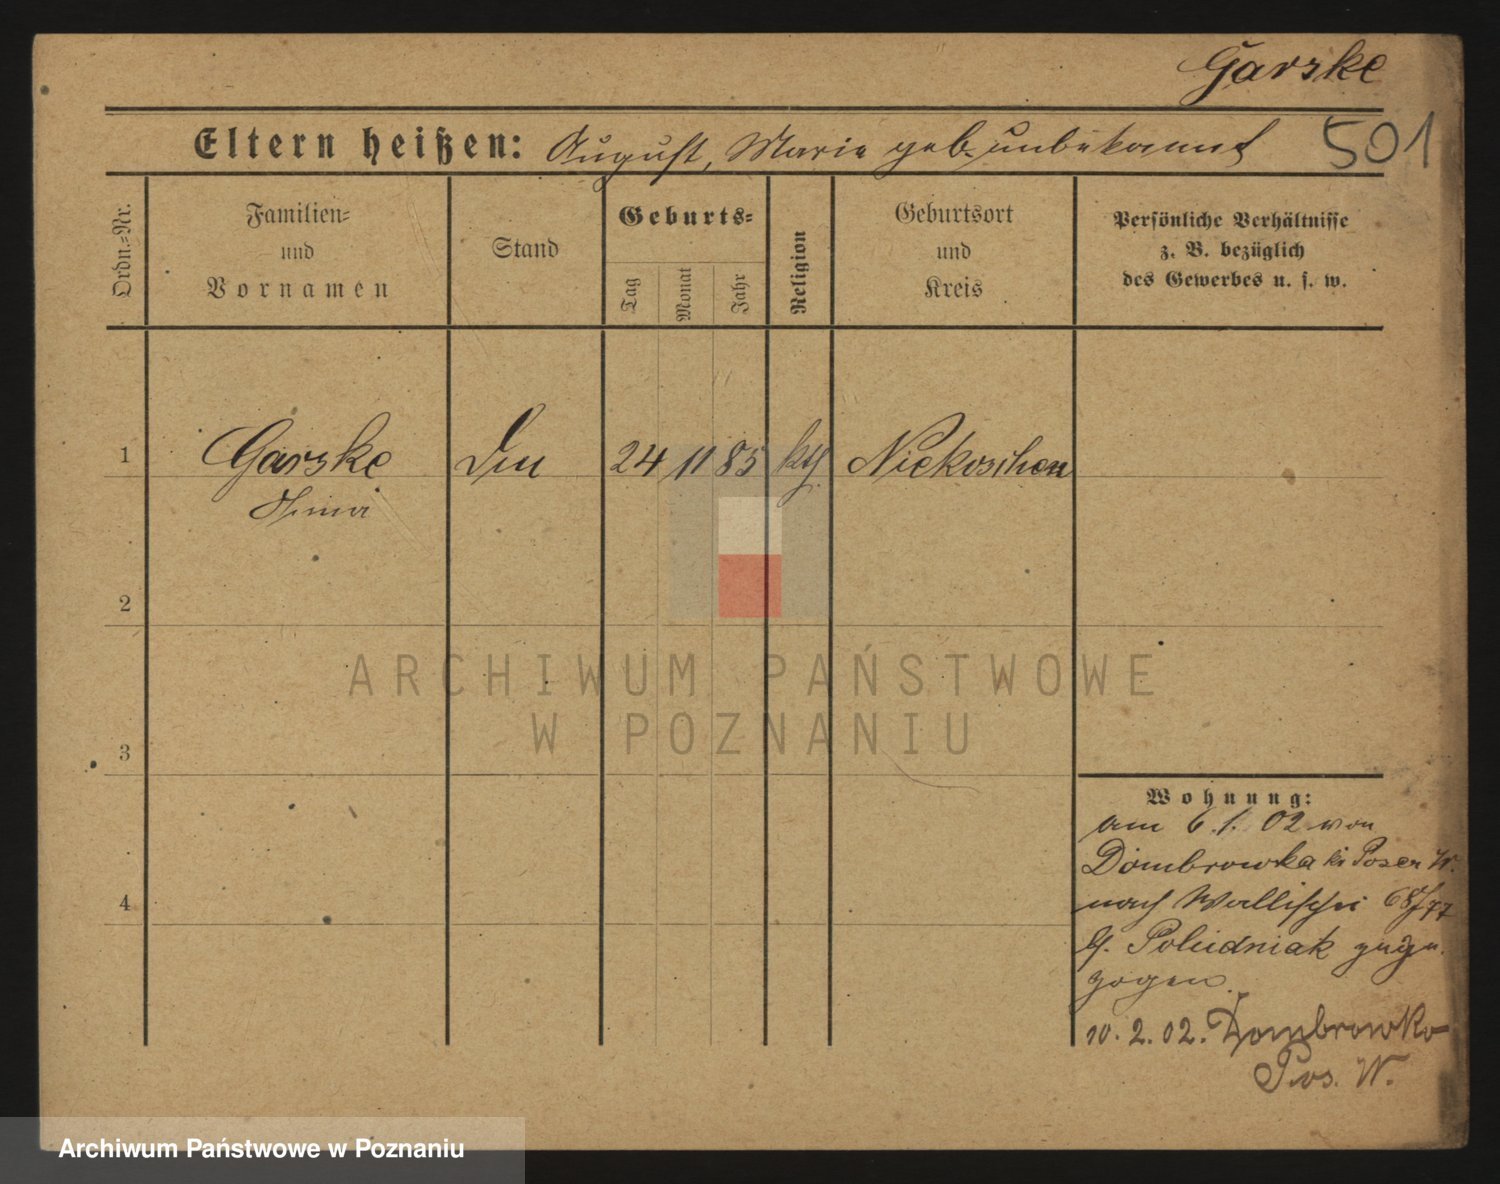 Garske
Eltern heißen: August, Marie geb. unbekannt 501
Ordn.-Nr.
Familien-
und
Vornamen
Stand
Geburts-
Tag
Monat
Jahr
Religion
Geburtsort
und
Kreis
Persönliche Verhältnisse
z. B. bezüglich
des Gewerbes u. s. w.
1 Garske 24 11 85 Niekoschen
2
ARCHIWUM PAŃSTWOWE
W POZNANIU
3
Wohnung:
am 6.1. 02 von
Dombrowka Posen W.
nach Wallischei 68/77
Poludniak
zogen.
4
10. 2. 02. Dombrowka
Pos. W.
Archiwum Państwowe w Poznaniu